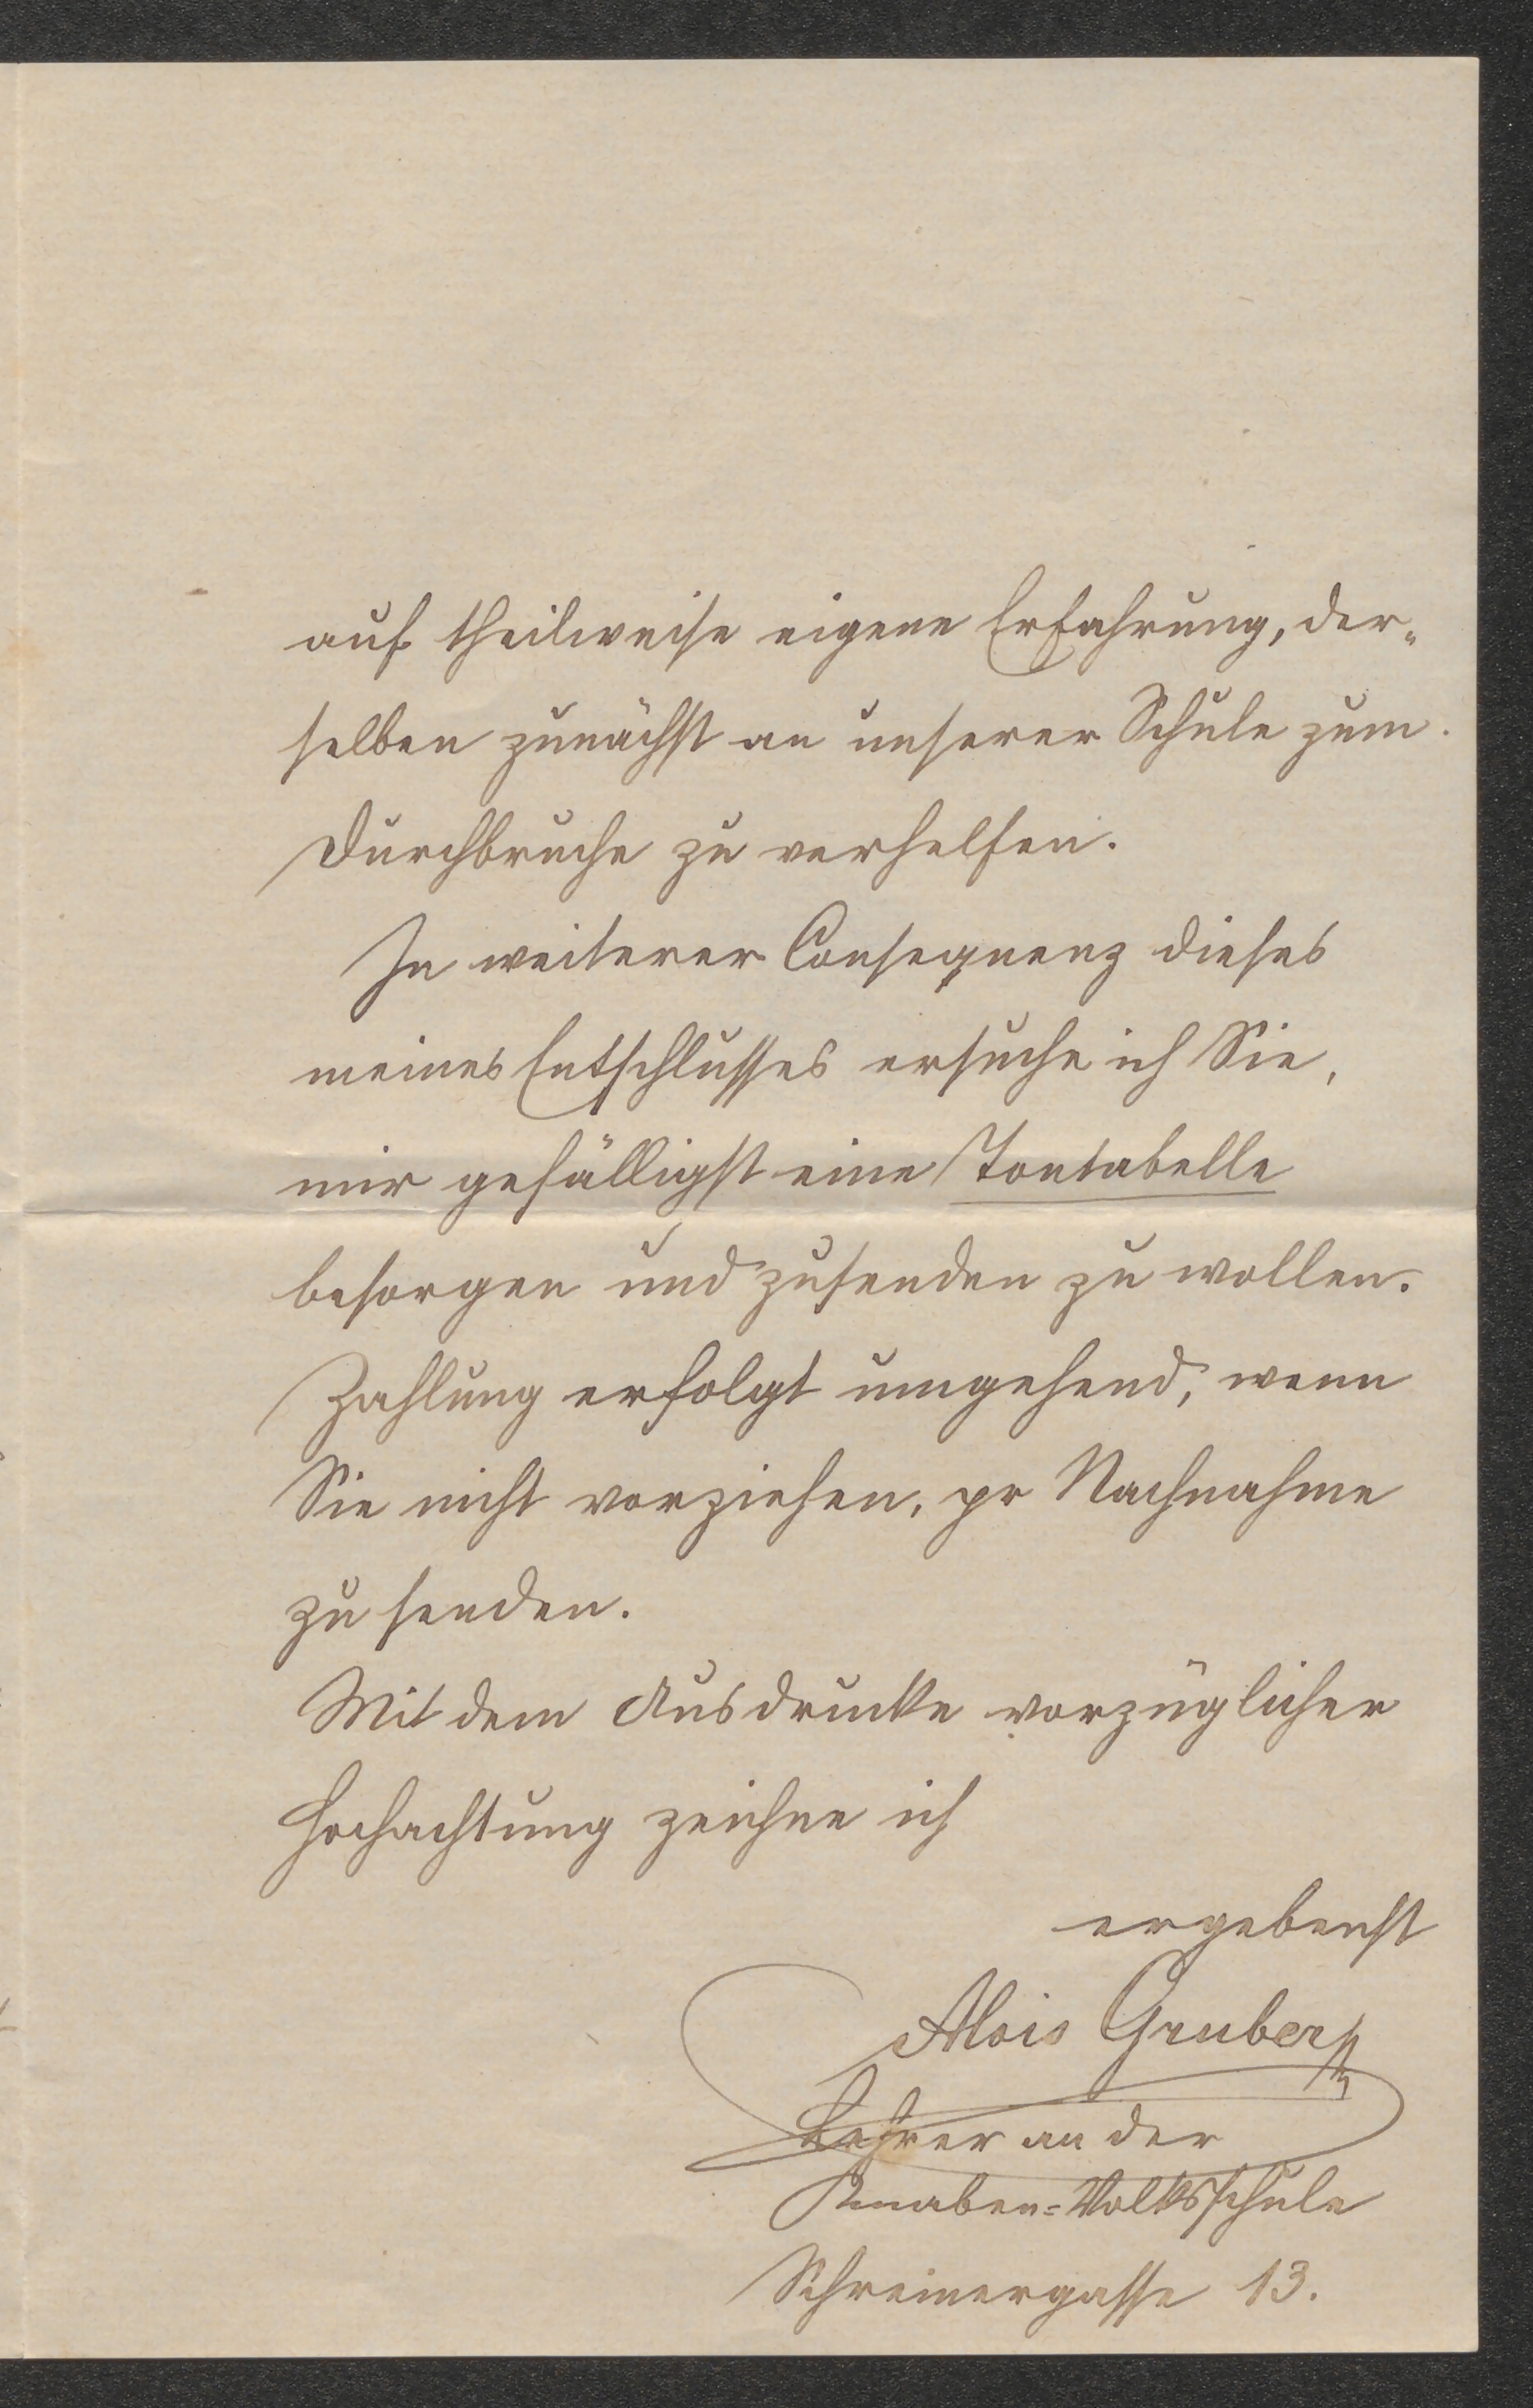 auf theilweise eigene Erfahrung, der-
selben zunächst an unserer Schule zum
Durchbruche zu verhelfen.
In weiterer Consequenz dieses
meines Entschlusses ersuche ich Sie,
mir gefälligst eine Tontabelle
besorgen und zusenden zu wollen.
Zahlung erfolgt umgehend, wenn
Sie nicht vorziehen, pr Nachnahme
zu senden.
Mit dem Ausdrucke vorzüglicher
Hochachtung zeichne ich
ergebenst
Alois Gruber
Lehrer an der
Knaben=Volksschule
Schreinergasse 13.